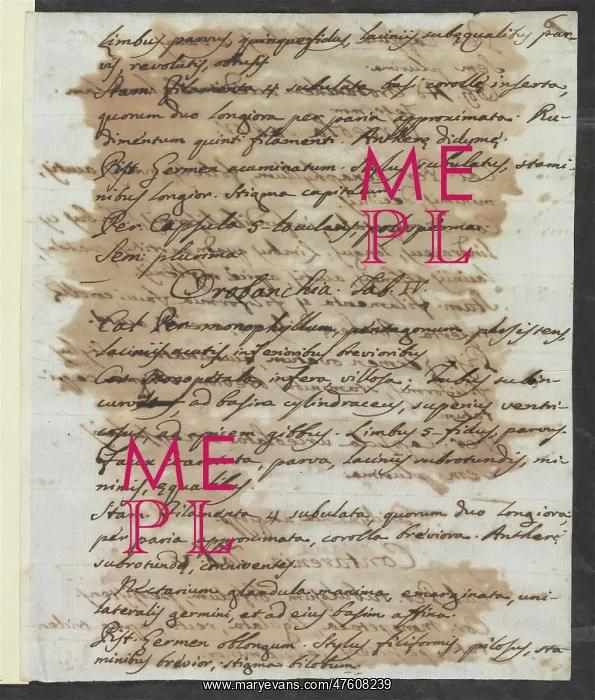 Limbus parvus, quinquefidus, laciniis subæqualibus par-
vis revolutis, obtusis
Stam: filamenta 4 subulata basi corollę inserta,
quorum duo longiora per paria approximata. Ru-
dimentum quinti filamenti. Antherę didymę.
Pist. Germen acuminatum. Stylus subulatus, stami-
nibus longior. Stigma capitatum
Per. Capsula 5-locularis polysperma.
Sem: plurima
Orobanchia. Tab. IV.
Cal. Per. monophyllum, pentagonum persistens,
laciniis acutis inferioribus brevioribus
Cor. Monopetala infera villosa; Tubus subin-
curvus, ad basim cylindraceus, superius ventri-
cosus, ad apicem gibbus. Limbus 5-fidus, parvus.
parva, laciniis subrotundis, mi-
nimis, ęqualibus
Stam. Filamenta 4 subulata, quorum duo longiora,
per paria approximata, corolla breviora. Antherę
subrotundę, conniventes
Nectarium glandula maxima, emarginata, uni-
lateralis germini, et ad eius basim affixa.
Pist. Germen oblongum. Stylus filiformis, pilosus, sta-
minibus brevior, stigma bilobum.
ME
PL
ME
PL
www.maryevans.com/47608239